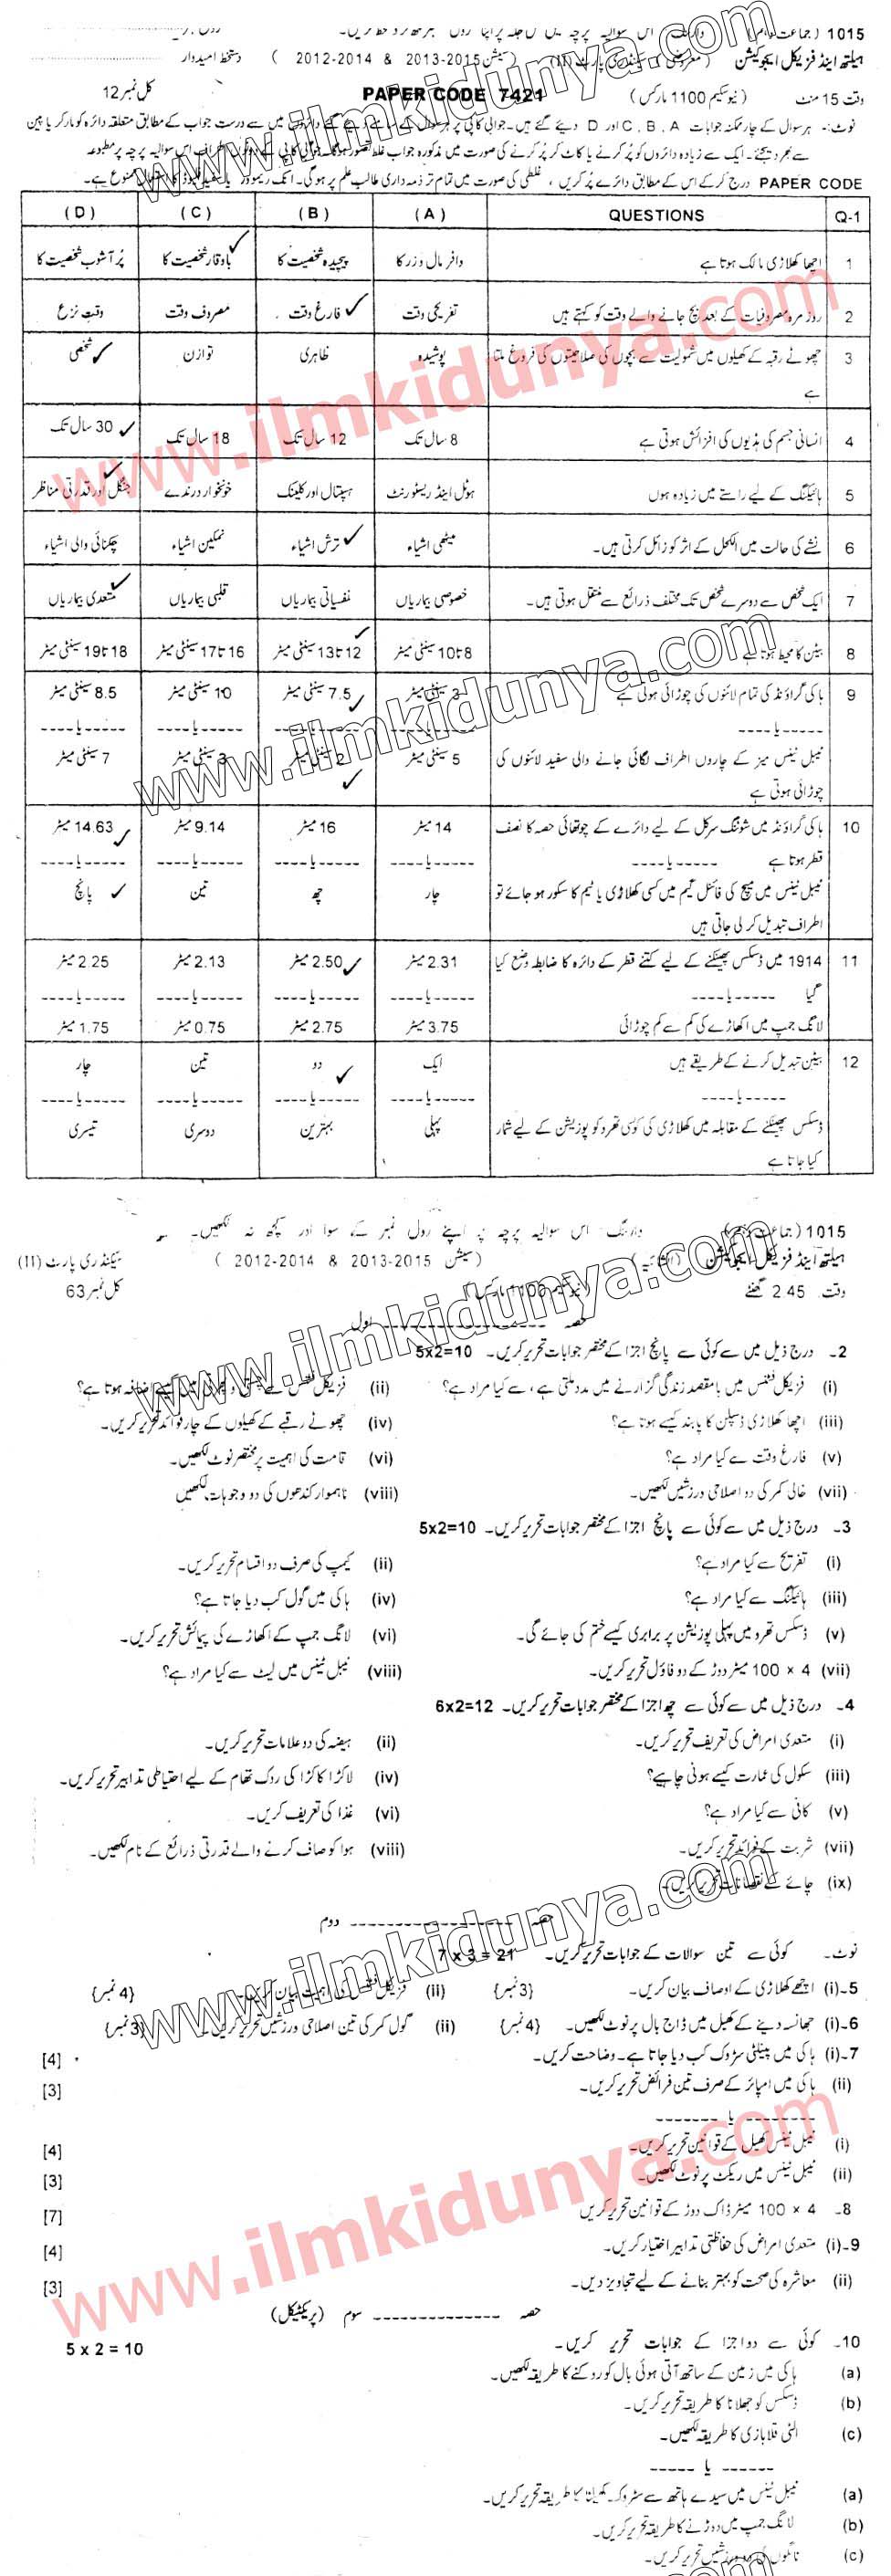 1015 (جماعت دہم) وارننگ اس سوالیہ پرچہ
ہیلتھ اینڈ فزیکل ایجوکیشن (معروضی) (سیشن 2015-2013 & 2014-2012) دستخط امیدوار
وقت 15 منٹ (نیوسکیم 1100 مارکس) PAPER CODE 7421 کل نمبر 12
نوٹ:- ہر سوال کے چار ممکنہ جوابات A ، B ، C اور D دیئے گئے ہیں۔ جوابی کاپی پر ہر سوال کے سامنے دیئے گئے دائروں میں سے درست جواب کے مطابق متعلقہ دائرہ کو مارکر یا پین
سے بھر دیجئے۔ ایک سے زیادہ دائروں کو پُر کرنے یا کاٹ کر پُر کرنے کی صورت میں مذکورہ جواب غلط تصور ہوگا۔ جوابی کاپی کے اطراف اس سوالیہ پرچہ پر مطبوعہ
PAPER CODE درج کر کے اس کے مطابق دائرے پُر کریں ، غلطی کی صورت میں تمام تر ذمہ داری طالب علم پر ہوگی۔ انک ریموور ممنوع ہے۔
Q-1 QUESTIONS (A) (B) (C) (D)
1 اچھا کھلاڑی مالک ہوتا ہے وافر مال و زر کا پیچیدہ شخصیت کا باوقار شخصیت کا پُر آشوب شخصیت کا
2 روزمرہ مصروفیات کے بعد بچ جانے والے وقت کو کہتے ہیں تفریحی وقت فارغ وقت مصروف وقت وقتِ نزع
3 چھوٹے رقبہ کے کھیلوں میں شمولیت سے بچوں کی صلاحیتوں کی فروغ ملتا پوشیدہ ظاہری توازن شخصی
ہے
4 انسانی جسم کی ہڈیوں کی افزائش ہوتی ہے 8 سال تک 12 سال تک 18 سال تک 30 سال تک
5 ہائیکنگ کے لیے راستے میں زیادہ ہوں ہوٹل اینڈ ریسٹورنٹ ہسپتال اور کلینک خونخوار درندے جنگل اور قدرتی مناظر
6 نشے کی حالت میں الکحل کے اثر کو زائل کرتی ہیں۔ میٹھی اشیاء ترش اشیاء نمکین اشیاء چکنائی والی اشیاء
7 ایک شخص سے دوسرے شخص تک مختلف ذرائع سے منتقل ہوتی ہیں۔ خصوصی بیماریاں نفسیاتی بیماریاں قلبی بیماریاں متعدی بیماریاں
8 بیٹن کا محیط ہوتا ہے 8 تا 10 سینٹی میٹر 12 تا 13 سینٹی میٹر 16 تا 17 سینٹی میٹر 18 تا 19 سینٹی میٹر
9 ہاکی گراؤنڈ کی تمام لائنوں کی چوڑائی ہوتی ہے 3 سینٹی میٹر 7.5 سینٹی میٹر 10 سینٹی میٹر 8.5 سینٹی میٹر
----- یا ----- ----- یا ----- ----- یا ----- ----- یا ----- ----- یا -----
ٹیبل ٹینس میز کے چاروں اطراف لگائی جانے والی سفید لائنوں کی 5 سینٹی میٹر 2 سینٹی میٹر 3 سینٹی میٹر 7 سینٹی میٹر
چوڑائی ہوتی ہے
10 ہاکی گراؤنڈ میں شوٹنگ سرکل کے لیے دائرے کے چوتھائی حصہ کا نصف 14 میٹر 16 میٹر 9.14 میٹر 14.63 میٹر
قطر ہوتا ہے ----- یا ----- ----- یا ----- ----- یا ----- ----- یا ----- ----- یا -----
ٹیبل ٹینس میں میچ کی فائنل گیم میں کسی کھلاڑی یا ٹیم کا سکور ہو جائے تو چار چھ تین پانچ
اطراف تبدیل کر لی جاتی ہیں
11 1914 میں ڈسکس پھینکنے کے لیے کتنے قطر کے دائرہ کا ضابطہ وضع کیا 2.31 میٹر 2.50 میٹر 2.13 میٹر 2.25 میٹر
گیا ----- یا ----- ----- یا ----- ----- یا ----- ----- یا ----- ----- یا -----
لانگ جمپ میں اکھاڑے کی کم سے کم چوڑائی 3.75 میٹر 2.75 میٹر 0.75 میٹر 1.75 میٹر
12 بیٹن تبدیل کرنے کے طریقے ہیں ایک دو تین چار
----- یا ----- ----- یا ----- ----- یا ----- ----- یا ----- ----- یا -----
ڈسکس پھینکنے کے مقابلہ میں کھلاڑی کی کونسی تھرو کو پوزیشن کے لیے شمار پہلی بہترین دوسری تیسری
کیا جاتا ہے
1015 (جماعت دہم) وارننگ۔ اس سوالیہ پرچہ پر اپنے رول نمبر کے سوا اور کچھ نہ لکھیں۔
ہیلتھ اینڈ فزیکل ایجوکیشن (انشائیہ) (سیشن 2015-2013 & 2014-2012) سیکنڈری پارٹ (II)
وقت 2.45 گھنٹے (نیوسکیم 1100 مارکس) کل نمبر 63
حصہ ---------------- اول
2۔ درج ذیل میں سے کوئی سے پانچ اجزا کے مختصر جوابات تحریر کریں۔ 5x2=10
(i) فزیکل فٹنس میں بامقصد زندگی گزارنے میں مدد ملتی ہے، سے کیا مراد ہے؟ (ii) فزیکل فٹنس سے چستی و میں کیسے اضافہ ہوتا ہے؟
(iii) اچھا کھلاڑی ڈسپلن کا پابند کیسے ہوتا ہے؟ (iv) چھوٹے رقبے کے کھیلوں کے چار فوائد تحریر کریں۔
(v) فارغ وقت سے کیا مراد ہے؟ (vi) قامت کی اہمیت پر مختصر نوٹ لکھیں۔
(vii) خالی کمر کی دو اصلاحی ورزشیں لکھیں۔ (viii) ناہموار کندھوں کی دو وجوہات لکھیں
3۔ درج ذیل میں سے کوئی سے پانچ اجزا کے مختصر جوابات تحریر کریں۔ 5x2=10
(i) تفریح سے کیا مراد ہے؟ (ii) کیمپ کی صرف دو اقسام تحریر کریں۔
(iii) ہائیکنگ سے کیا مراد ہے؟ (iv) ہاکی میں گول کب دیا جاتا ہے؟
(v) ڈسکس تھرو میں پہلی پوزیشن پر برابری کیسے ختم کی جائے گی۔ (vi) لانگ جمپ کے اکھاڑے کی پیمائش تحریر کریں۔
(vii) 4 × 100 میٹر دوڑ کے دو فاؤل تحریر کریں۔ (viii) ٹیبل ٹینس میں لیٹ سے کیا مراد ہے؟
4۔ درج ذیل میں سے کوئی سے چھ اجزا کے مختصر جوابات تحریر کریں۔ 6x2=12
(i) متعدی امراض کی تعریف تحریر کریں۔ (ii) ہیضہ کی دو علامات تحریر کریں۔
(iii) سکول کی عمارت کیسے ہونی چاہیے؟ (iv) لاکڑا کاکڑا کی روک تھام کے لیے احتیاطی تدابیر تحریر کریں۔
(v) کافی سے کیا مراد ہے؟ (vi) غذا کی تعریف کریں۔
(vii) شربت کے فوائد تحریر کریں۔ (viii) ہوا کو صاف کرنے والے قدرتی ذرائع کے نام لکھیں۔
(ix) چائے کے نقصانات تحریر کریں۔
حصہ ---------------- دوم
نوٹ۔ کوئی سے تین سوالات کے جوابات تحریر کریں۔ 7 x 3 = 21
5۔(i) اچھے کھلاڑی کے اوصاف بیان کریں۔ {3 نمبر} (ii) فزیکل فٹنس کی اہمیت بیان کریں۔ {4 نمبر}
6۔(i) جھانسہ دینے کے کھیل میں ڈاج بال پر نوٹ لکھیں۔ {4 نمبر} (ii) گول کمر کی تین اصلاحی ورزشیں تحریر کریں۔ {3 نمبر}
7۔(i) ہاکی میں پینلٹی سڑوک کب دیا جاتا ہے۔ وضاحت کریں۔ [4]
(ii) ہاکی میں امپائر کے صرف تین فرائض تحریر کریں۔ [3]
------- یا -------
(i) ٹیبل ٹینس کھیل کے قوانین تحریر کریں۔ [4]
(ii) ٹیبل ٹینس میں ریکٹ پر نوٹ لکھیں۔ [3]
8۔ 4 × 100 میٹر ڈاک دوڑ کے قوانین تحریر کریں [7]
9۔(i) متعدی امراض کی حفاظتی تدابیر اختیار کریں۔ [4]
(ii) معاشرہ کی صحت کو بہتر بنانے کے لیے تجاویز دیں۔ [3]
حصہ -------------- سوم (پریکٹیکل)
10۔ کوئی سے دو اجزا کے جوابات تحریر کریں۔ 5 x 2 = 10
(a) ہاکی میں زمین کے ساتھ آتی ہوئی بال کو روکنے کا طریقہ لکھیں۔
(b) ڈسکس کو جھلانا کا طریقہ تحریر کریں۔
(c) الٹی قلابازی کا طریقہ لکھیں۔
------ یا ------
(a) ٹیبل ٹینس میں سیدھے ہاتھ سے سٹروک کھیلنا کا طریقہ تحریر کریں۔
(b) لانگ جمپ میں دوڑنے کا طریقہ تحریر کریں۔
(c) ٹانگوں کی ورزشیں تحریر کریں۔
www.ilmkidunya.com